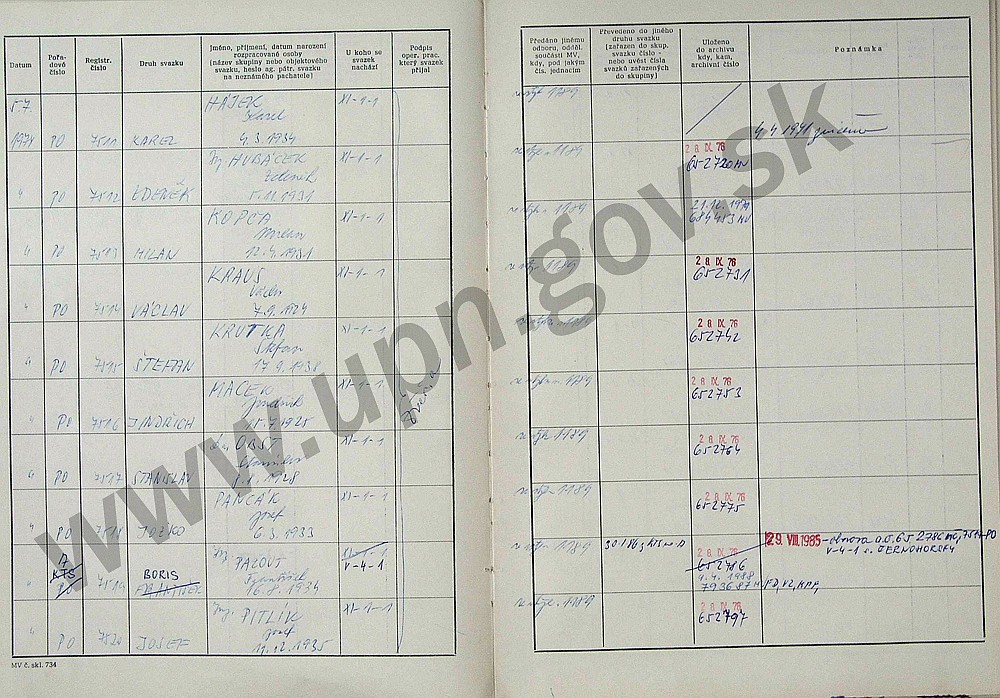 Datum
Pořa-
dové
číslo
Registr.
číslo
Druh svazku
Jméno, příjmení, datum narození
rozpracované osoby
(název skupiny nebo objektového
svazku, heslo ag. pátr. svazku
na neznámého pachatele)
U koho se
svazek
nachází
Podpis
oper. prac.
který svazek
přijal
Předáno jinému
odboru, odděl.
součásti MV,
kdy, pod jakým
čís. jednacím
Převedeno do jiného
druhu svazku
(zařazen do skup.
svazku číslo -
nebo uvést čísla
svazků zařazených
do skupiny)
Uloženo
do archivu
kdy, kam,
archivní číslo
Poznámka
5.7.
1974 PO 7511 KAREL
HÁJEK
Karel
4.3.1934
XI-1-1
1189
4.4.1991 zničeno
" PO 7512 ZDENĚK
Ing. HUBÁČEK
Zdeněk
5.11.1931
XI-1-1
1189
28. IX. 76
652720 MV
" PO 7513 MILAN
KOPČA
Milan
12.4.1931
XI-1-1
1189
21.12.1979
684453 MV
" PO 7514 VÁCLAV
KRAUS
Václav
7.9.1924
XI-1-1
1189
28. IX. 76
652731
" PO 7515 ŠTEFAN
KRUTKA
Štefan
17.9.1938
XI-1-1
1189
28. IX. 76
652742
" PO 7516 JINDŘICH
MACEK
Jindřich
15.7.1925
XI-1-1
1189
28. IX. 76
652753
" PO 7517 STANISLAV
OBST
Stanislav
1928
XI-1-1
1189
28. IX. 76
652764
" PO 7518 JOŽKO
PANČÁK
Jozef
6.3.1933
XI-1-1
1189
28. IX. 76
652775
A
KTS
" PO 7519 BORIS
FRANTIŠEK
Ing. PAZOUT
František
16.8.1934
XI-1-1
V-4-1
1189
28. IX. 76
652786
9.4.1988
793687
29. VIII. 1985
V-4-1 s. ČERNOHORSKÝ
" PO 7520 JOSEF
Ing. PITLÍK
Josef
19.12.1935
XI-1-1
1189
28. IX. 76
652797
MV č. skl. 734
www.upn.gov.sk